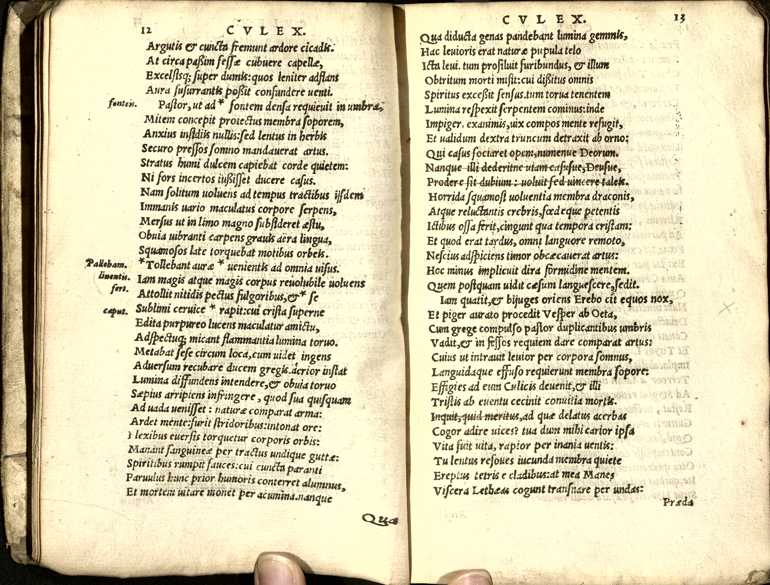 12 CVLEX.
Argutis & cuncta fremunt ardore cicadis.
At circa paßim fessæ cubuere capellæ,
Excelsisq; super dumis: quos leniter adflans
Aura susurrantis poßit confundere uenti.
fontem.
Pastor, ut ad * fontem densa requieuit in umbra,
Mitem concepit proiectus membra soporem,
Anxius insidijs nullis: sed lentus in herbis
Securo pressos somno mandauerat artus.
Stratus humi dulcem capiebat corde quietem:
Ni fors incertos iußisset ducere casus.
Nam solitum uoluens ad tempus tractibus ijsdem
Immanis uario maculatus corpore serpens,
Mersus ut in limo magno subsideret æstu,
Obuia uibranti carpens grauis aëra lingua,
Squamosos late torquebat motibus orbeis.
Pallebam.
*Tollebant auræ * uenientis ad omnia uisus.
liuentis.
Iam magis atque magis corpus reuolubile uoluens
fert.
Attollit nitidis pectus fulgoribus, & * se
caput.
Sublimi ceruice * rapit: cui crista superne
Edita purpureo lucens maculatur amictu,
Adspectuq; micant flammantia lumina toruo.
Metabat sese circum loca, cum uidet ingens
Aduersum recubare ducem gregis. acrior instat
Lumina diffundens intendere, & obuia toruo
Sæpius arripiens infringere, quod sua quisquam
Ad uada uenisset: naturæ comparat arma:
Ardet mente: furit stridoribus: intonat ore:
lexibus euersis torquetur corporis orbis:
Manant sanguineæ per tractus undique guttæ:
Spiritibus rumpit fauces: cui cuncta paranti
Paruulus hunc prior humoris conterret alumnus,
Et mortem uitare monet per acumina. nanque
Qua
CVLEX. 13
Qua diducta genas pandebant lumina gemmis,
Hac leuioris erat naturæ pupula telo
Icta leui. tum prosiluit furibundus, & illum
Obtritum morti misit: cui dißitus omnis
Spiritus exceßit sensus. tum torua tenentem
Lumina respexit serpentem cominus: inde
Impiger, exanimis, uix compos mente refugit,
Et ualidum dextra truncum detraxit ab orno:
Qui casus sociaret opem, numenue Deorum.
Nanque illi dederitne uiam casusue, Deusue,
Prodere sit dubium: uoluit sed uincere taleis.
Horrida squamosi uoluentia membra draconis,
Atque reluctantis crebris, fœdeque petentis
Ictibus ossa ferit, cingunt qua tempora cristam:
Et quod erat tardus, omni languore remoto,
Nescius adspiciens timor obcæcauerat artus:
Hoc minus implicuit dira formidine mentem.
Quem postquam uidit cæsum languescere, sedit.
Iam quatit, & bijuges oriens Erebo cit equos nox,
Et piger aurato procedit Vesper ab Oeta,
Cum grege compulso pastor duplicantibus umbris
Vadit, & in fessos requiem dare comparat artus:
Cuius ut intrauit leuior per corpora somnus,
Languidaque effuso requierunt membra sopore:
Effigies ad eum Culicis deuenit, & illi
Tristis ab euentu cecinit conuitia mortis.
Inquit, quid meritus, ad quæ delatus acerbas
Cogor adire uices? tua dum mihi carior ipsa
Vita fuit uita, rapior per inania uentis:
Tu lentus refoues iucunda membra quiete
Ereptus tetris e cladibus: at mea Manes
Viscera Lethæas cogunt transnare per undas:
Præda